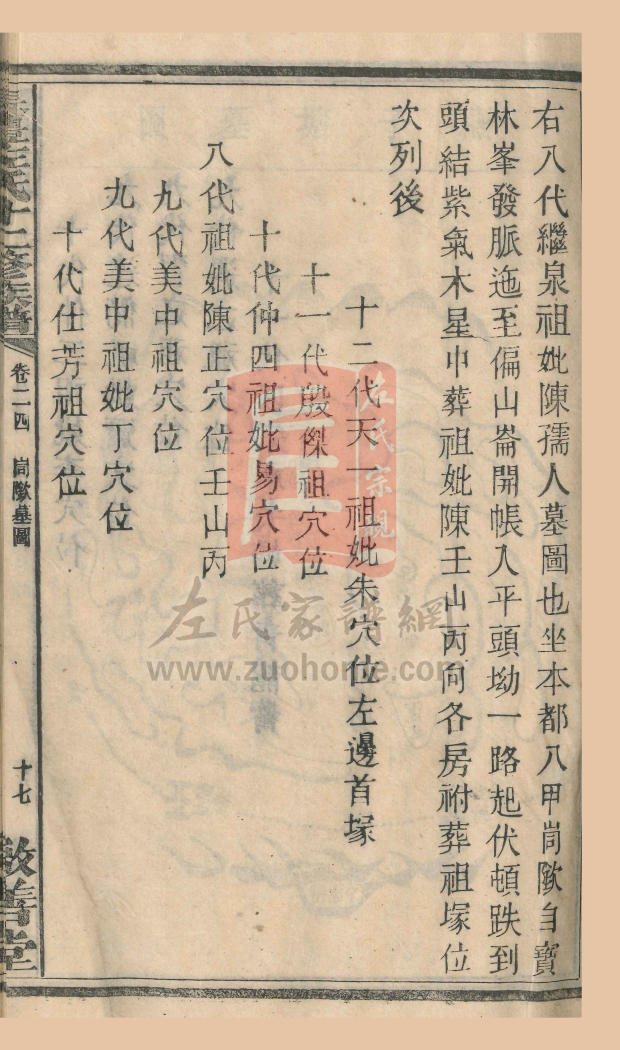 右八代繼泉祖妣陳孺人墓圖也坐本都八甲崗歘自寶
林峯發脈迤至偏山崙開帳入平頭坳一路起伏頓跌到
頭結紫氣木星巾葬祖妣陳壬山丙向各房祔葬祖塚位
次列後
十二代天一祖妣朱穴位左邊首塚
十一代殷傑祖穴位
十代仲四祖妣易穴位
八代祖妣陳正穴位壬山丙
九代美中祖穴位
九代美中祖妣丁穴位
十代仕芳祖穴位
左氏十二修族譜
卷二四
崗歘墓圖
十七
敦善堂
左氏宗親
左氏家譜網
www.zuohome.com